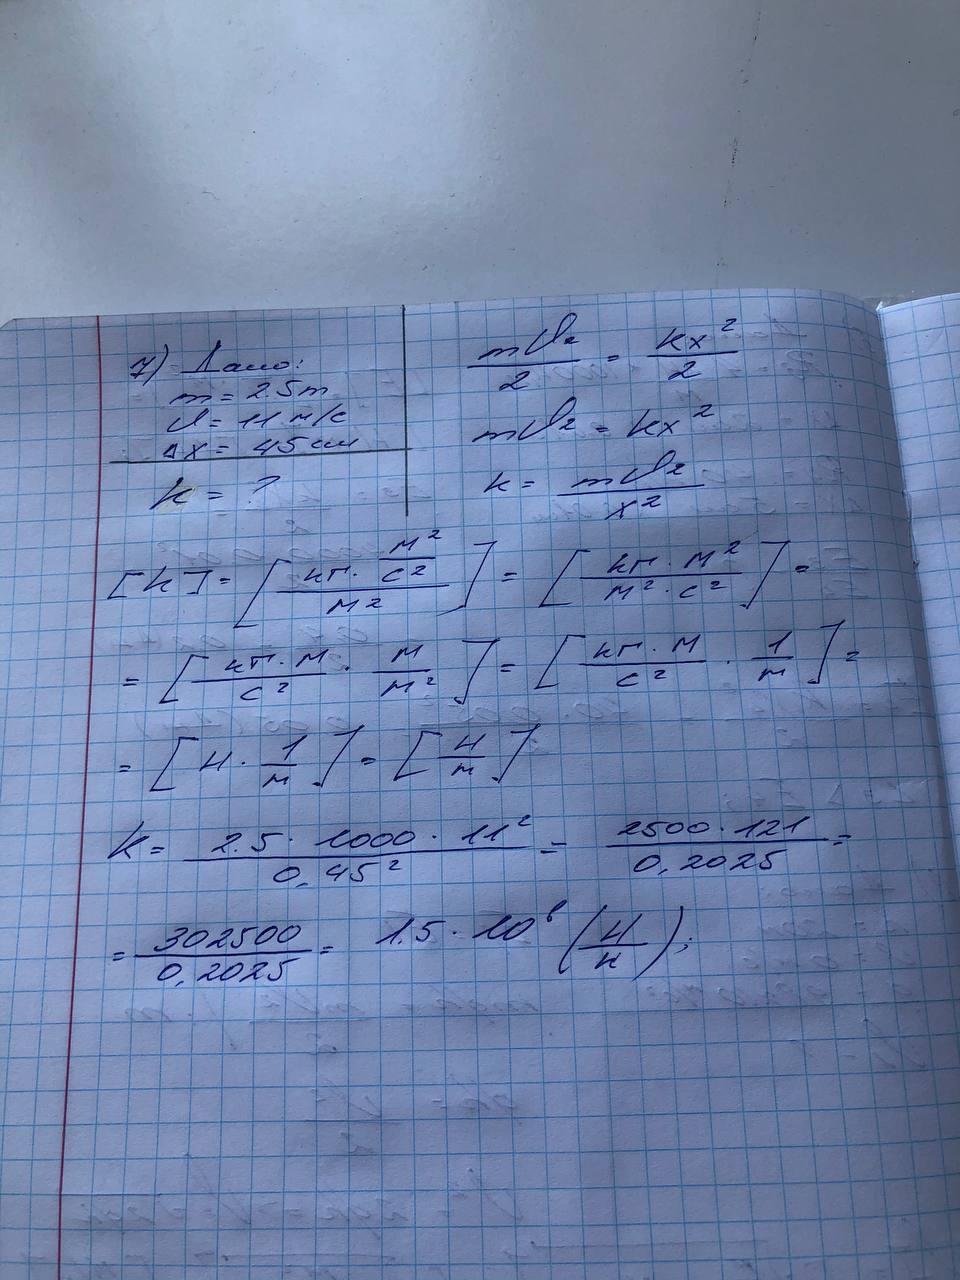 7) Дано:
m = 2.5т
υ = 11 м/с
Δx = 45 см
k = ?
mυ²/2 = kx²/2
mυ² = kx²
k = mυ²/x²
[k] = [кг · м²/с² / м²] = [кг · м² / м² · с²] =
= [кг · м / с² · м/м²] = [кг · м / с² · 1/м] =
= [Н · 1/м] = [Н/м]
k = 2.5 · 1000 · 11² / 0,45² = 2500 · 121 / 0,2025 =
= 302500 / 0,2025 = 1.5 · 10⁶ (Н/м);